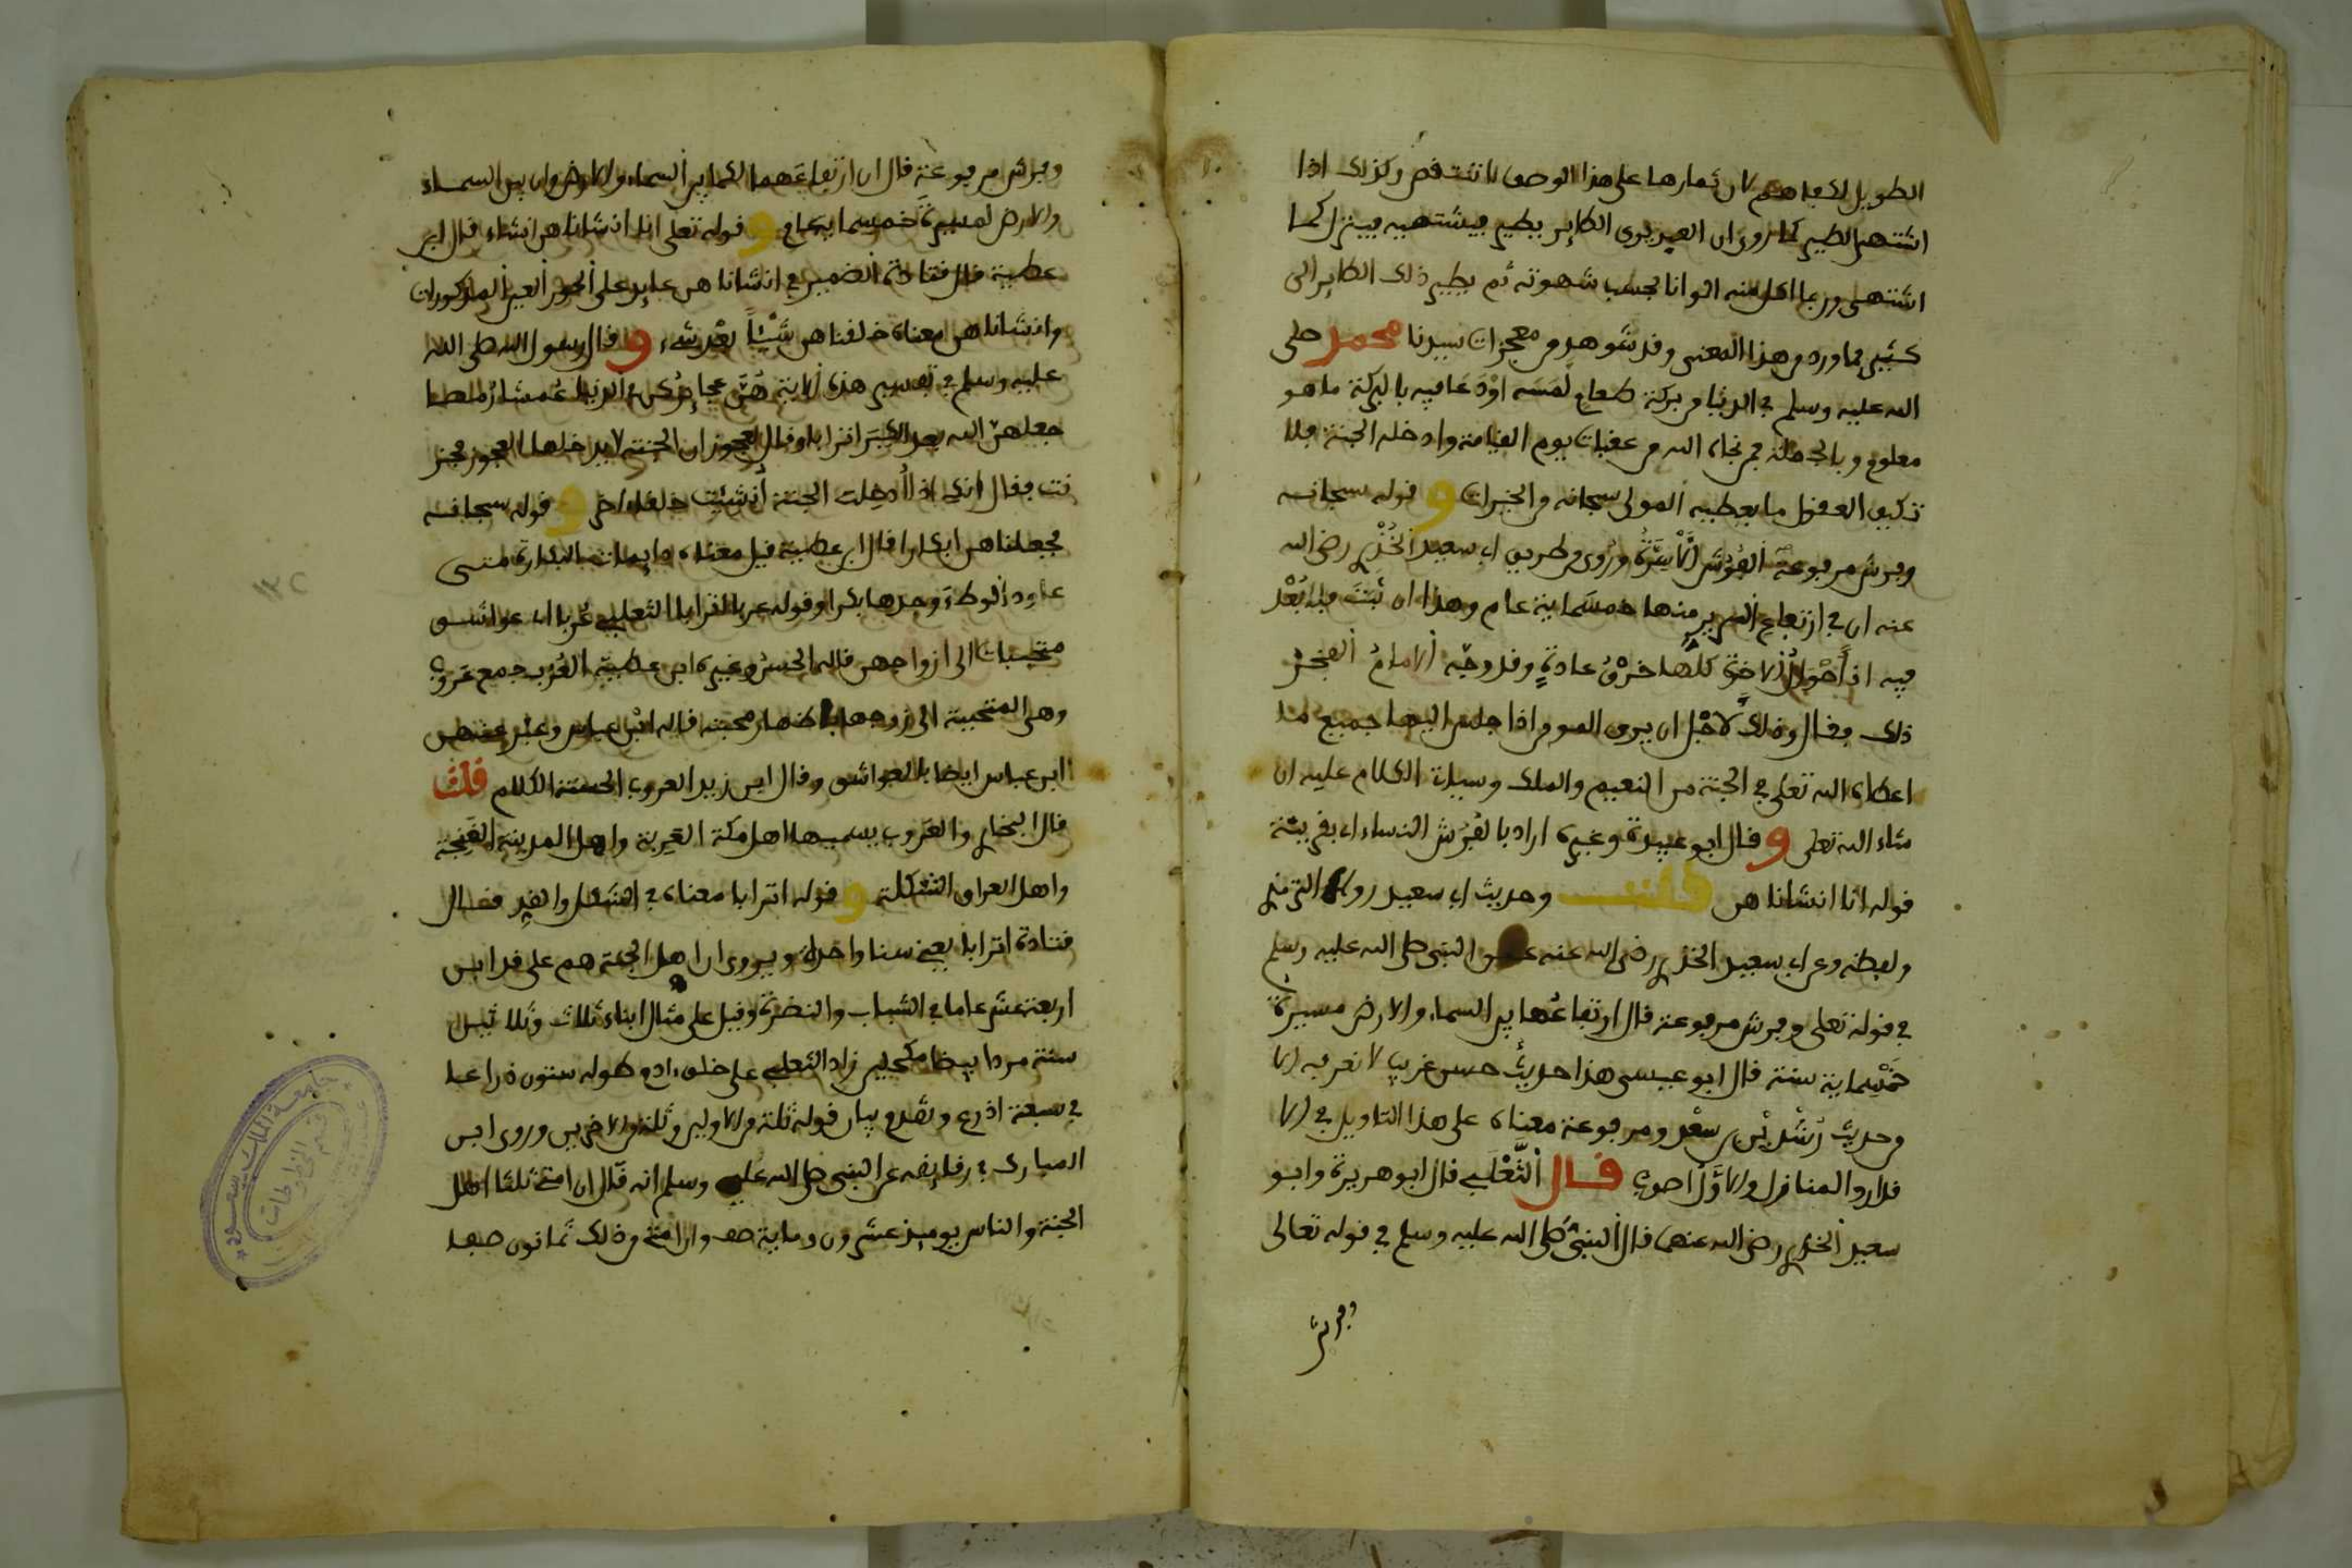 الطويل لكفاهم لان ثمارها على هذا الوصف لا تنقص وكذلك اذا
اشتهى الطير كما روي ان العبد يرى الطاير يطير فيشتهيه فينزل كما
اشتهى وربما اكل منه الوانا بحسب شهوته ثم يطير ذلك الطاير الى
كثير مما ورد من هذا المعنى وقد شوهد من معجزات سيدنا محمد صلى
الله عليه وسلم في الدنيا من بركة طعام لمسه او دعا فيه بالبركة ما هو
معلوم وبالجملة فمن نجاه الله من عقبات يوم القيامة وادخله الجنة فلا
تكيف العقول ما يعطيه المولى سبحانه من الخيرات وقوله سبحانه
وفرش مرفوعة الفرش الاسرة وروي من طريق ابي سعيد الخدري رضي الله
عنه ان في ارتفاع السرير منها خمسماية عام وهذا ان ثبت فلا بعد
فيه اذ احوال الاخرة كلها خرق عادة وقد وجه الامام الفخر
ذلك فقال وذلك لاجل ان يرى المومن اذا جلس اليها جميع ما
اعطاه الله تعلى في الجنة من النعيم والملك وسياتي الكلام عليه ان
شاء الله تعلى وقال ابو عبيدة وغيره اراد بالفرش النساء اي بقرينة
قوله انا انشاناهن قلت وحديث ابي سعيد رواه الترمذي
ولفظه وعن ابي سعيد الخدري رضي الله عنه عن النبي صلى الله عليه وسلم
في قوله تعلى وفرش مرفوعة قال ارتفاعها بين السماء والارض مسيرة
خمسماية سنة قال ابو عيسى هذا حديث حسن غريب لا نعرفه الا
من حديث رشدين بن سعد ومرفوعة معناه على هذا التاويل في الا
قدار والمنازل والاول اصوب قال الثعلبي قال ابو هريرة وابو
سعيد الخدري رضي الله عنهما قال النبي صلى الله عليه وسلم في قوله تعالى
وفرش
وفرش مرفوعة قال ان ارتفاعهما لكما بين السماء والارض وان بين السماء
والارض لمسيرة خمسماية عام وقوله تعلى انا انشاناهن انشاء قال ابن
عطية قال قتادة الضمير في انشاناهن عايد على الحور العين المذكورات
وانشاناهن معناه خلقناهن شيئا بعد شيء وقال رسول الله صلى الله
عليه وسلم في تفسير هذه الاية هن عجايزكن في الدنيا عمشا رمصا
جعلهن الله بعد الكبر اترابا وقال لعجوز ان الجنة لا يدخلها العجوز فحز
نت فقال انك اذا ادخلت الجنة انشئت خلقا اخر وقوله سبحانه
فجعلناهن ابكارا قال ابن عطية قيل معناه دايمات البكارة متى
عاود الوطء وجدها بكرا وقوله عربا اترابا الثعلبي عربا اي عواشق
متحببات الى ازواجهن قاله الحسن وغيره ابن عطية العرب جمع عروب
وهي المتحببة الى زوجها باظهار محبته قاله ابن عباس وعبر عنهن
ابن عباس ايضا بالعواشق وقال ابن زيد العروب الحسنة الكلام قلت
قال البخاري والعروب يسميها اهل مكة العربة واهل المدينة الغنجة
واهل العراق الشكلة وقوله اترابا معناه في الشكل والقد فقال
قتادة اترابا يعني سنا واحدة ويروى ان اهل الجنة هم على قد ابن
اربعة عشر عاما في الشباب والنضرة وقيل على مثال ابناء ثلاث وثلاثين
سنة مردا بيضا مكحلين زاد الثعلبي على خلق ادم طوله ستون ذراعا
في سبعة اذرع وتقدم بيان قوله ثلة من الاولين وثلة من الاخرين وروى ابن
المبارك في رقايقه عن النبي صلى الله عليه وسلم انه قال ان امتي ثلثا اهل
الجنة والناس يوميذ عشرون وماية صف وان امتي من ذلك ثمانون صفا
جامعة الملك سعود
قسم المخطوطات